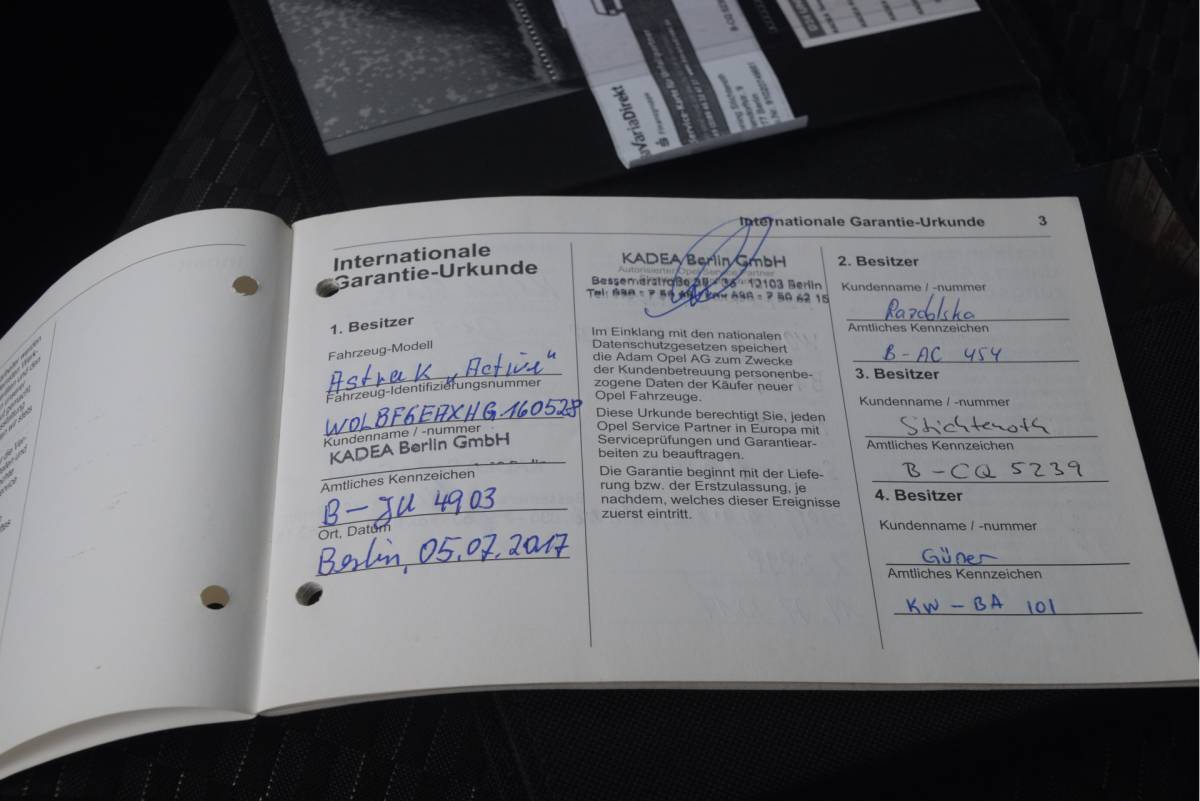 Internationale Garantie-Urkunde 3
Internationale
Garantie-Urkunde
1. Besitzer
Fahrzeug-Modell
Astra K „Active“
Fahrzeug-Identifizierungsnummer
Kundenname / -nummer
KADEA Berlin GmbH
Amtliches Kennzeichen
B-JU 4903
Ort, Datum
Berlin, 05.07.2017
KADEA Berlin GmbH
Autorisierter Opel Service Partner
Bessemerstraße 12103 Berlin
Im Einklang mit den nationalen
Datenschutzgesetzen speichert
die Adam Opel AG zum Zwecke
der Kundenbetreuung personenbe-
zogene Daten der Käufer neuer
Opel Fahrzeuge.
Diese Urkunde berechtigt Sie, jeden
Opel Service Partner in Europa mit
Serviceprüfungen und Garantiear-
beiten zu beauftragen.
Die Garantie beginnt mit der Liefe-
rung bzw. der Erstzulassung, je
nachdem, welches dieser Ereignisse
zuerst eintritt.
2. Besitzer
Kundenname / -nummer
Razdolska
Amtliches Kennzeichen
B-AC 454
3. Besitzer
Kundenname / -nummer
Stichternoth
Amtliches Kennzeichen
B-CQ 5239
4. Besitzer
Kundenname / -nummer
Güner
Amtliches Kennzeichen
KW-BA 101
VariaDirekt